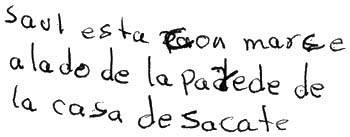 Saul esta con marce
alado de la parede de
la casa de sacate